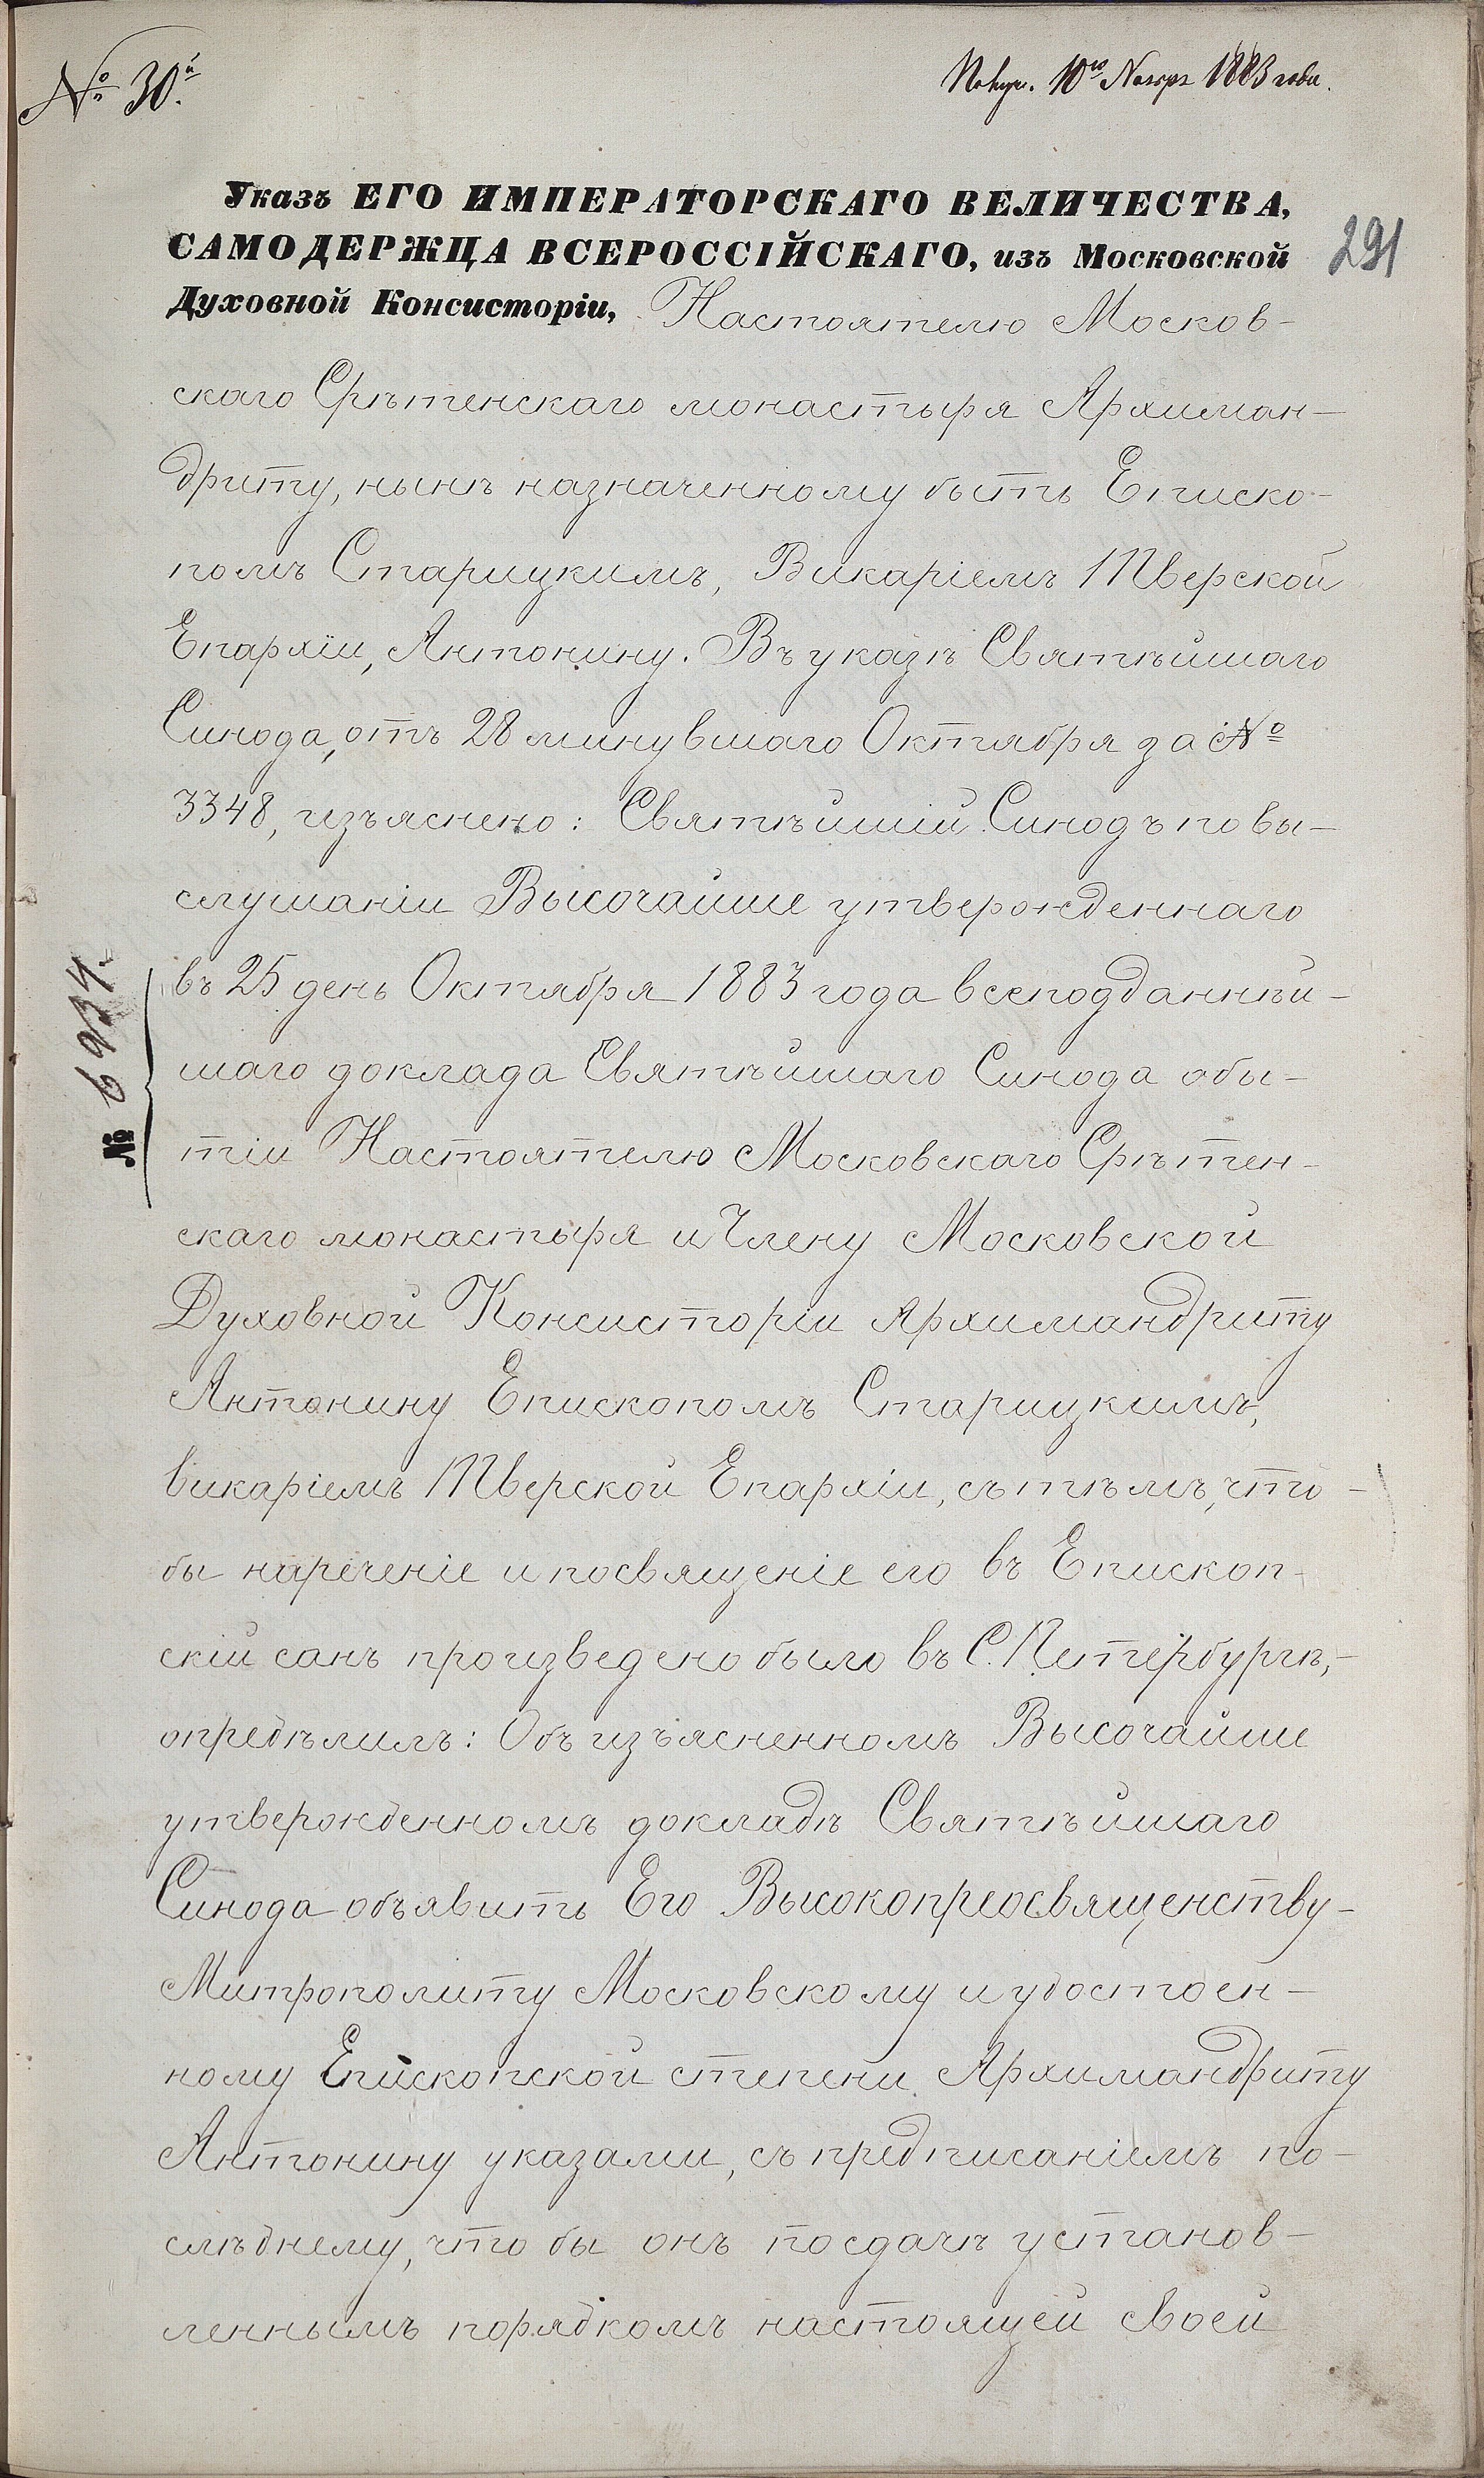 № 30.й
Получ. 10го Ноября 1883 года.
Указъ ЕГО ИМПЕРАТОРСКАГО ВЕЛИЧЕСТВА,
САМОДЕРЖЦА ВСЕРОССІЙСКАГО, изъ Московской
291
Духовной Консисторіи, Настоятелю Москов-
скаго Срѣтенскаго монастыря Архиман-
дриту, нынѣ назначенному быть Еписко-
помъ Старицкимъ, Викаріемъ Тверской
Епархіи, Антонину. Въ указѣ Святѣйшаго
Синода, отъ 28 минувшаго Октября за №
3348, изъяснено: Святѣйшій Синодъ по вы-
слушаніи Высочайше утвержденнаго
въ 25 день Октября 1883 года всеподданнѣй-
шаго доклада Святѣйшаго Синода о бы-
тіи Настоятелю Московскаго Срѣтен-
скаго монастыря и Члену Московской
Духовной Консисторіи Архимандриту
Антонину Епископомъ Старицкимъ,
викаріемъ Тверской Епархіи, съ тѣмъ, что-
бы нареченіе и посвященіе его въ Епископ-
скій санъ произведено было въ С.Петербургѣ,-
опредѣлилъ: Объ изъясненномъ Высочайше
утвержденномъ докладѣ Святѣйшаго
Синода объявить Его Высокопреосвященству-
Митрополиту Московскому и удостоен-
ному Епископской степени Архимандриту
Антонину указами, съ предписаніемъ по-
слѣднему, что бы онъ по сдачѣ установ-
леннымъ порядкомъ настоящей своей
№ 6934.